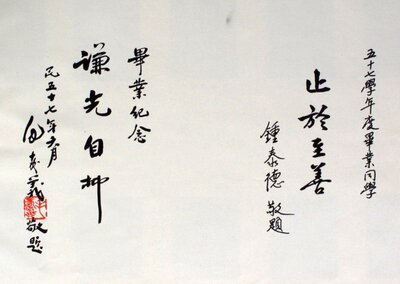 五十七學年度畢業同學
止於至善
鍾泰德 敬題
畢業紀念
謙光自抑
民五十七年六月
敬題